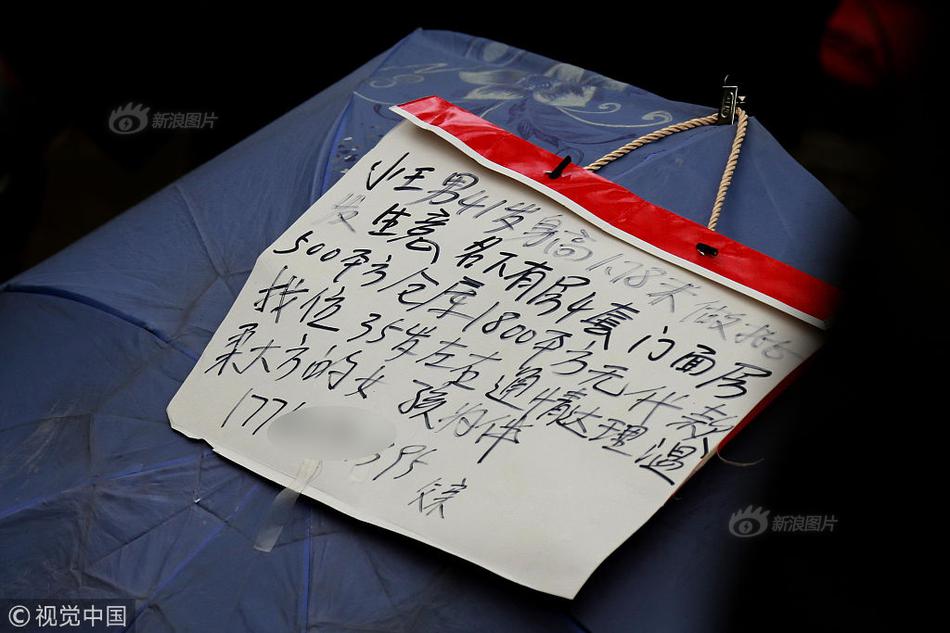 新浪图片
小王男41岁身高1.78米做批
发生意 名下有房4套 门面房
500平方仓库1800平方无代款
找位35岁左右通情达理温
柔大方的女孩为伴
177 395
新浪图片
© 视觉中国